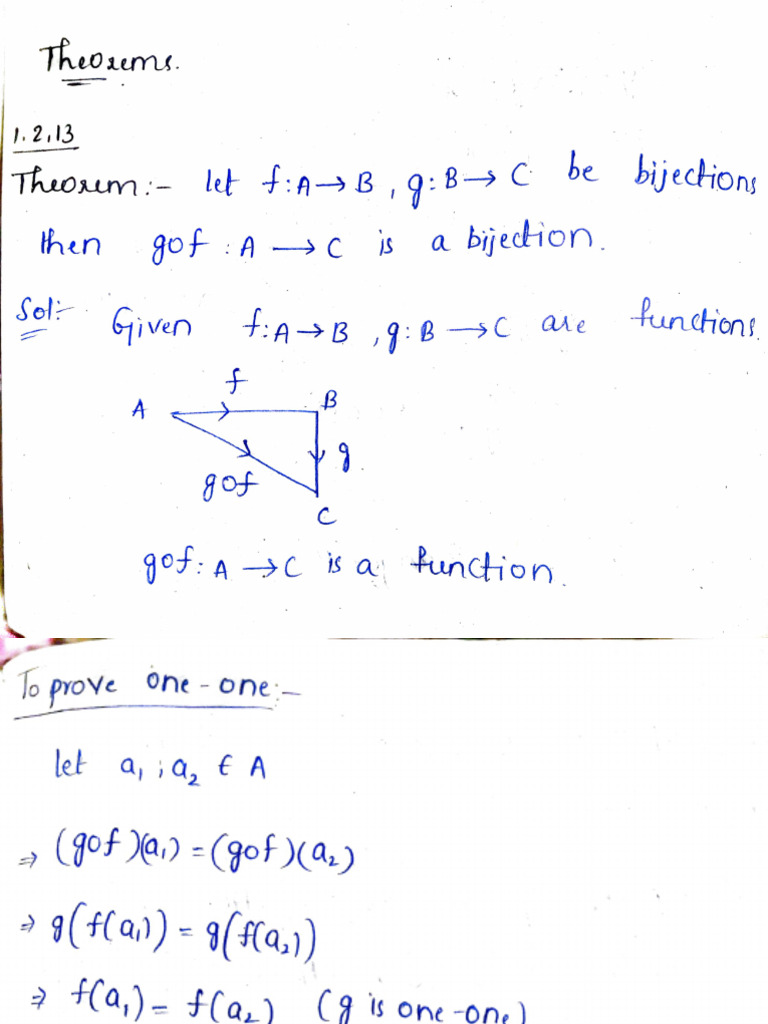 Theorems.
1.2.13
Theorem:- let f:A→B, g:B→C be bijections
then gof : A → C is a bijection.
Sol:- Given f:A→B, g:B→C are functions.
f
A B
g
gof
C
gof: A → C is a function.
To prove one-one:-
let a₁, a₂ ∈ A
⇒ (gof)(a₁) = (gof)(a₂)
⇒ g(f(a₁)) = g(f(a₂))
⇒ f(a₁) = f(a₂) (g is one-one)